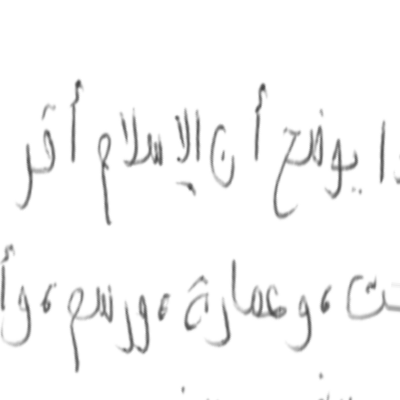 يوضح أن الإسلام أقر
، وعمارة ، ورسم ، وأ